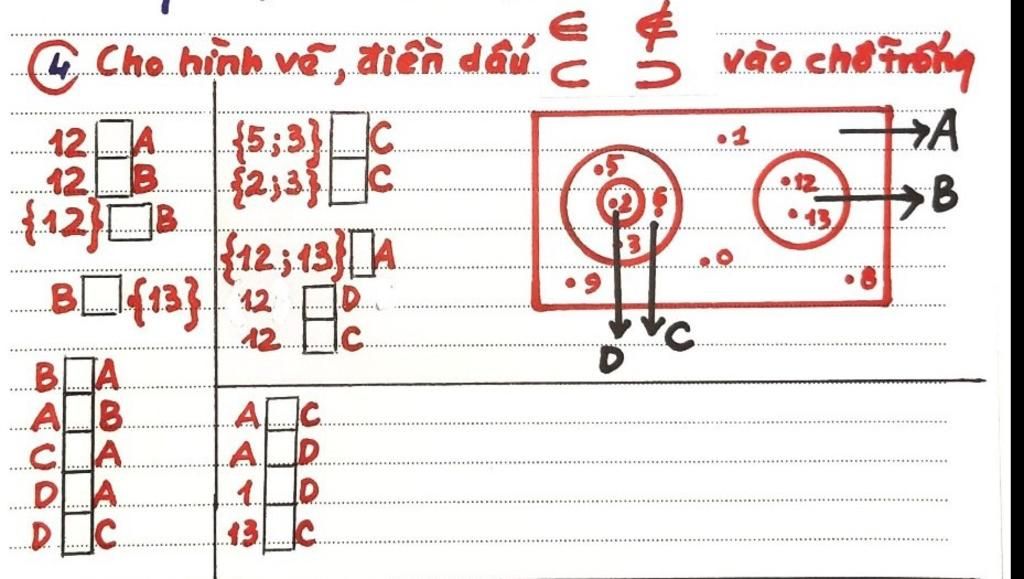 4 Cho hình vẽ, điền dấu ∈ ∉ ⊂ ⊃ vào chỗ trống
12 □ A
12 □ B
{12} □ B
B □ {13}
B □ A
A □ B
C □ A
D □ A
D □ C
{5;3} □ C
{2;3} □ C
{12;13} □ A
12 □ D
12 □ C
A □ C
A □ D
1 □ D
13 □ C
.1
A
.5
.12
.2
6
B
.13
3
.0
.9
.8
D
C